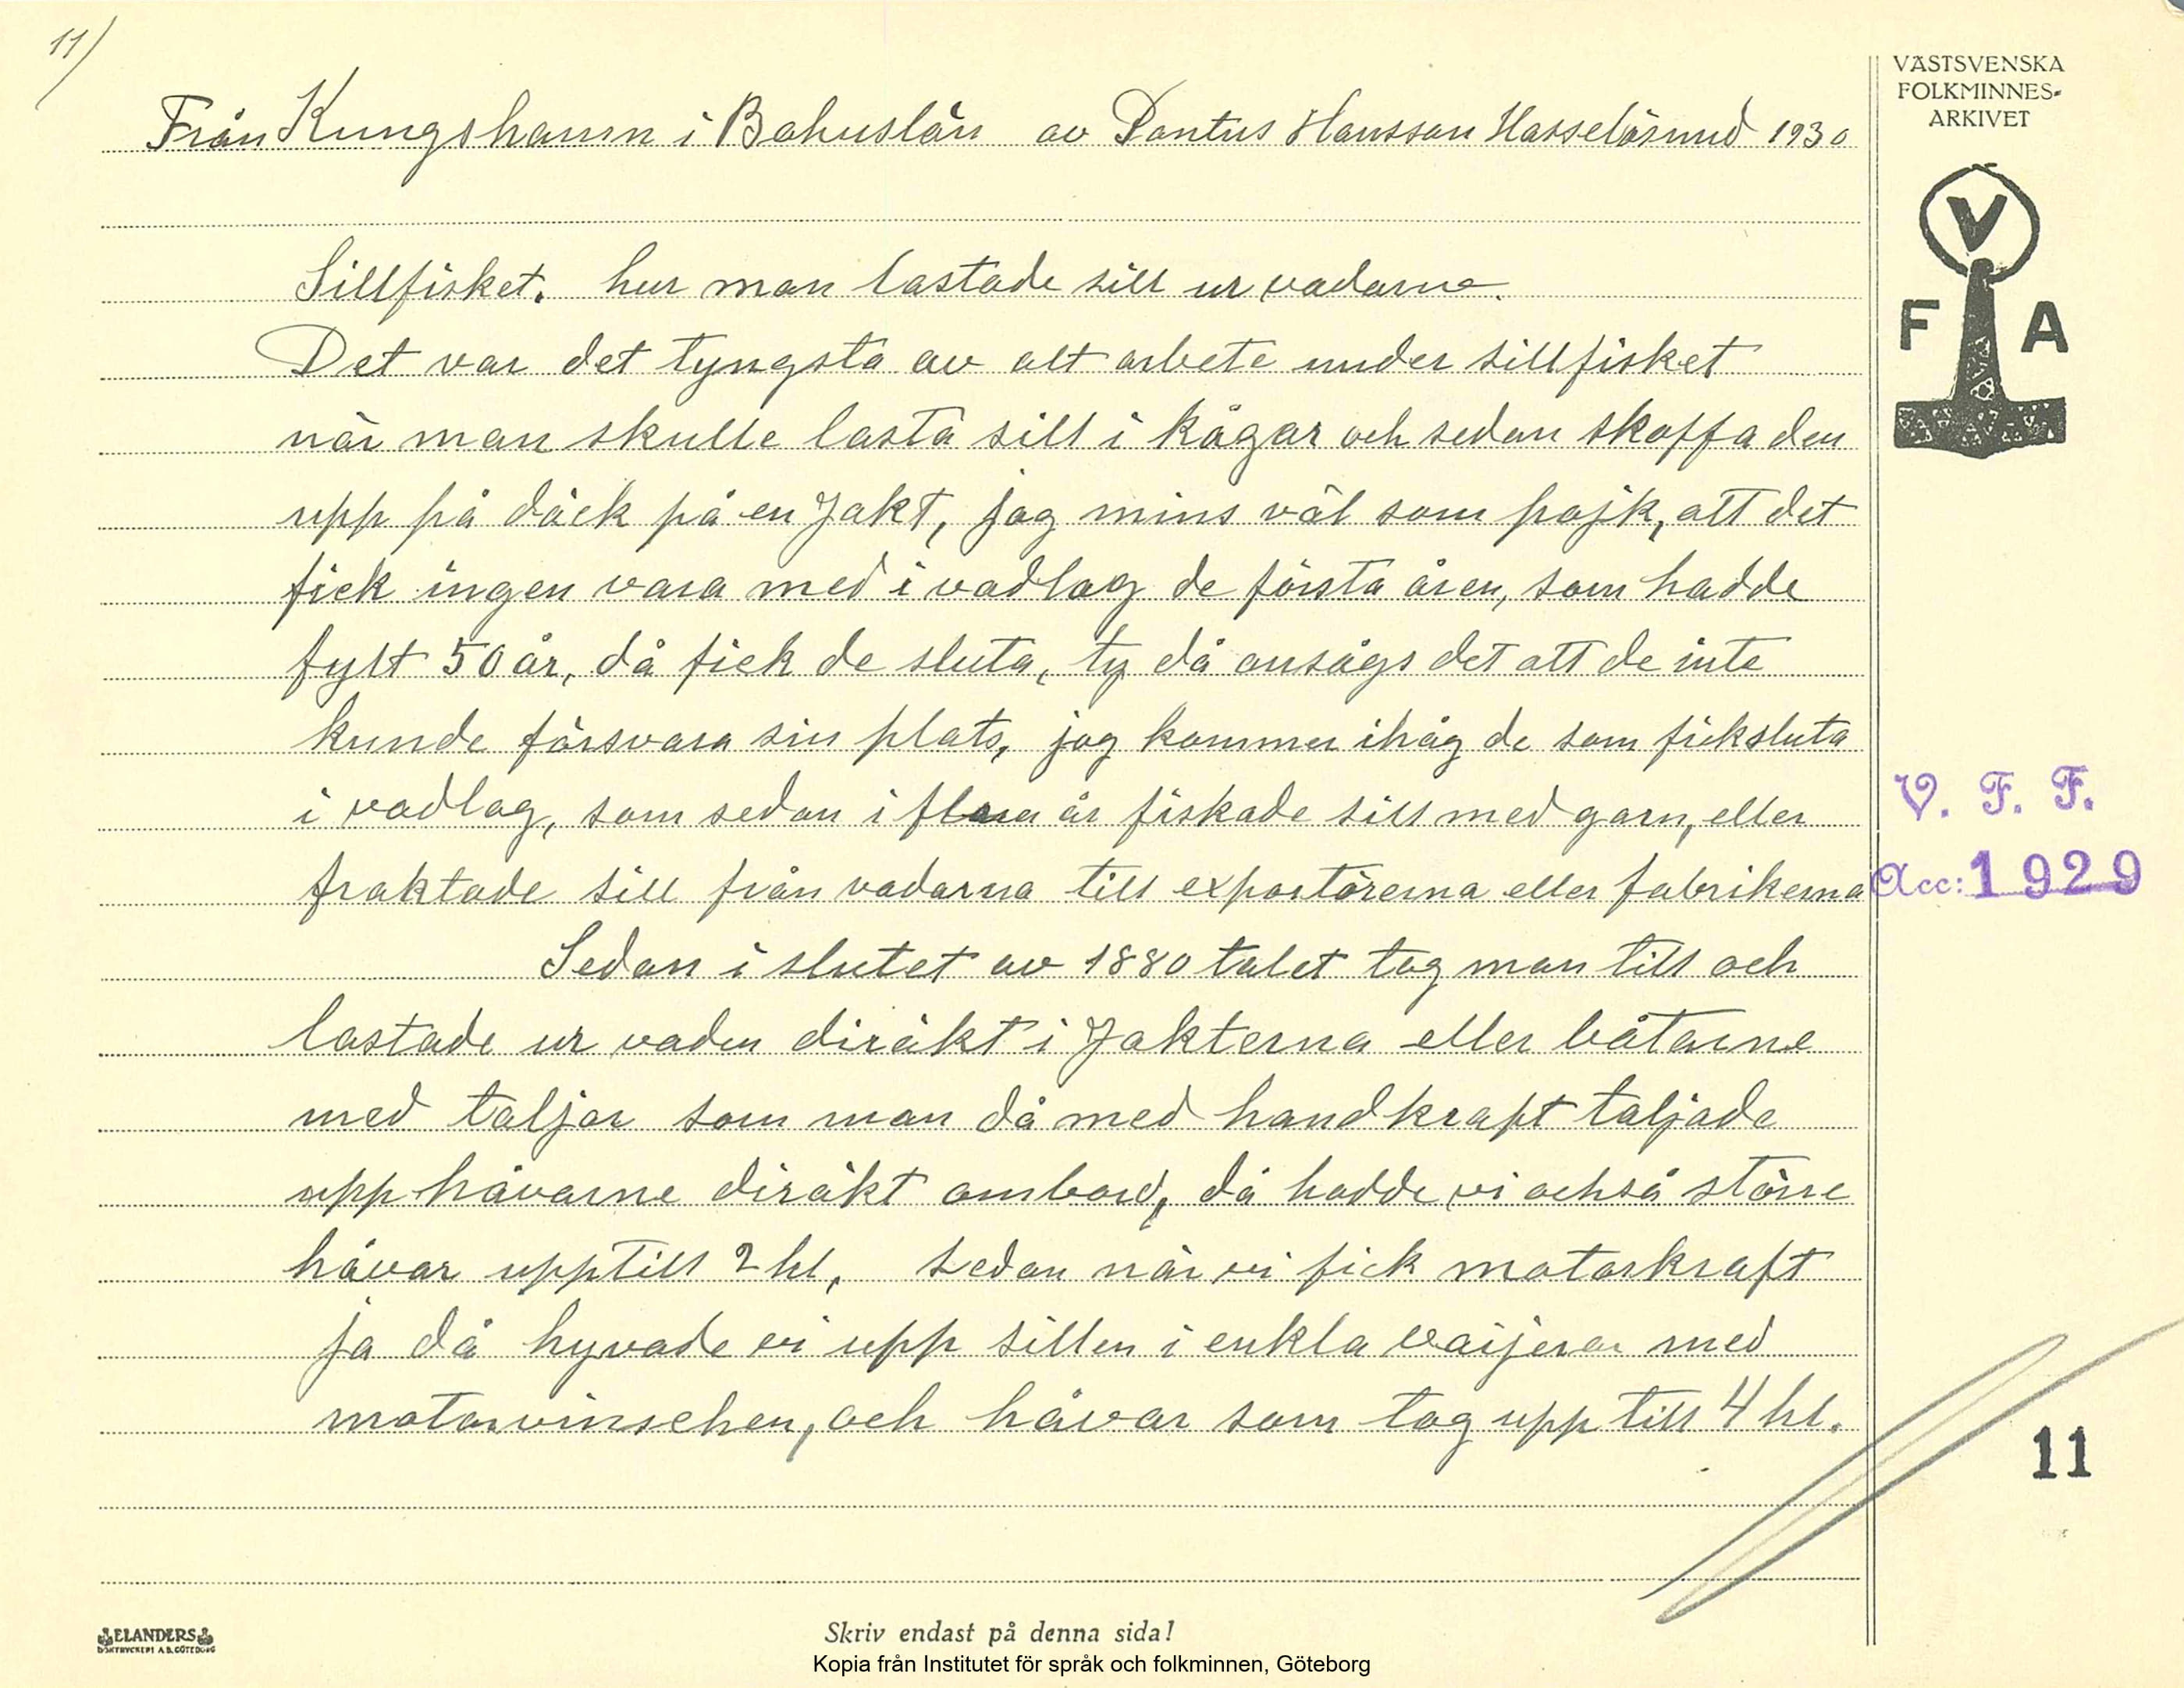 11)
VÄSTSVENSKA
FOLKMINNES-
ARKIVET
Från Kungshamn i Bohuslän av Pontus Hansson Hasselösund 1930
V
F A
Sillfisket. hur man lastade sill ur vadarne.
Det var det tyngsta av alt arbete under sillfisket
när man skulle lasta sill i kågar och sedan skaffa den
upp på däck på en Jakt, jag mins väl som pojk, att det
fick ingen vara med i vadlag de första åren, som hadde
fylt 50 år, då fick de sluta, ty då ansågs det att de inte
kunde försvara sin plats, jag kommer ihåg de som fick sluta
i vadlag, som sedan i flera år fiskade sill med garn, eller
fraktade sill från vadarna till exportörerna eller fabrikerna
V. F. F.
Acc: 1929
Sedan i slutet av 1880 talet tog man till och
lastade ur vaden diräkt i Jakterna eller båtarne
med taljor som man då med handkraft taljade
upp håvarne diräkt ombord, då hadde vi också större
håvar upptill 2 hl, sedan när vi fick motorkraft
ja då hyvade vi upp sillen i enkla vaijerar med
motorvinschen, och håvar som tog upp till 4 hl.
11
ELANDERS
BOKTRYCKERI A.B. GÖTEBORG
Skriv endast på denna sida!
Kopia från Institutet för språk och folkminnen, Göteborg